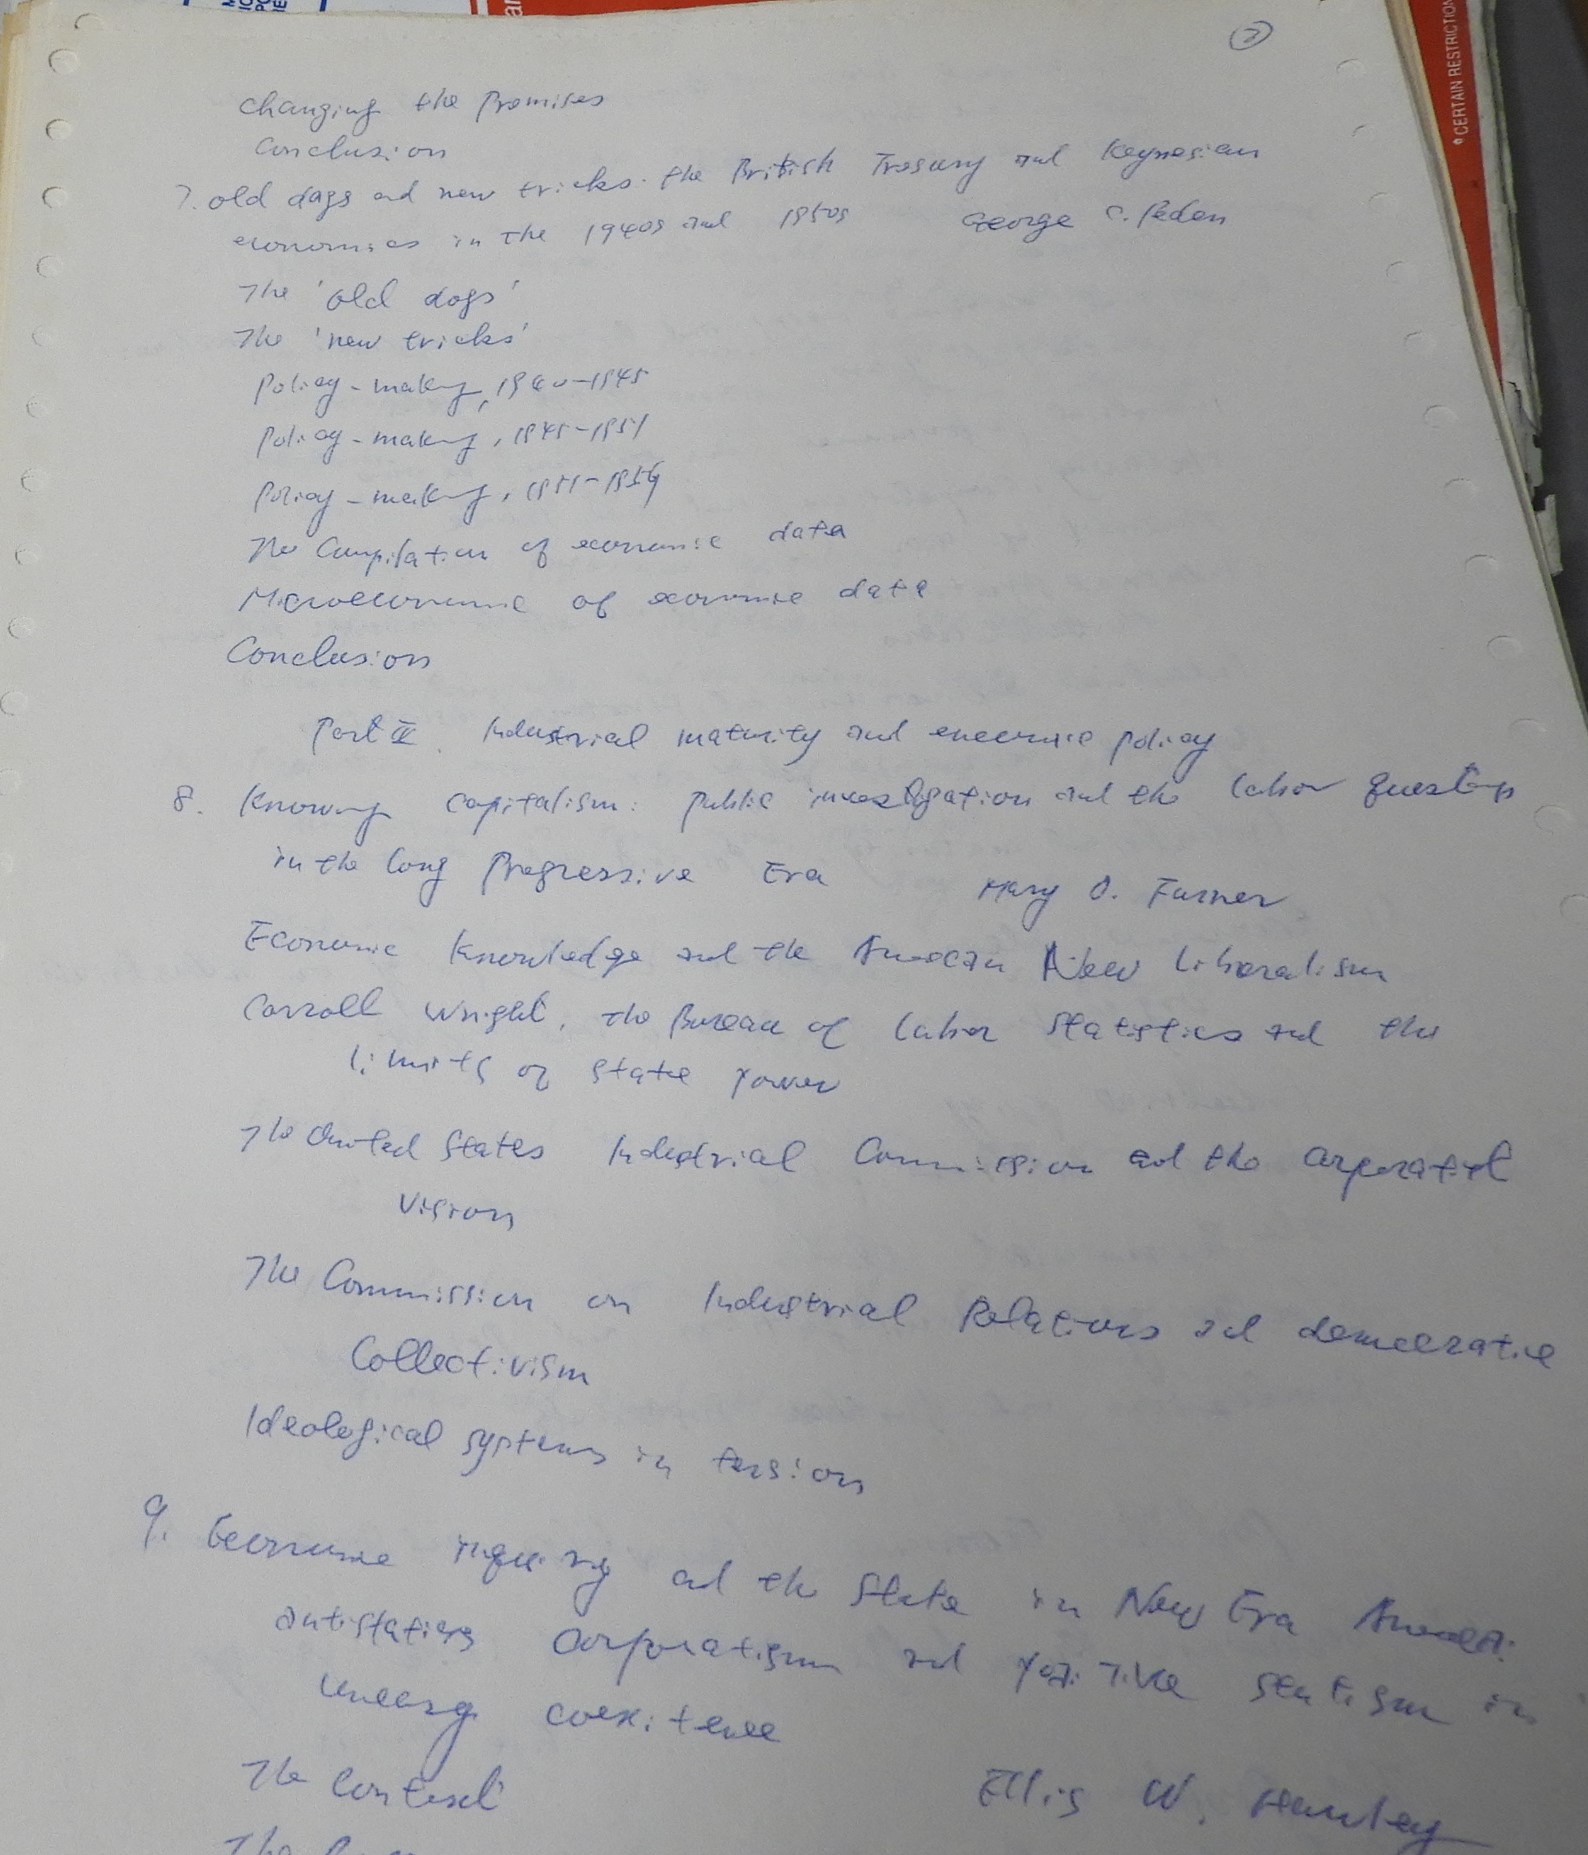 ②
changing the Premises
Conclusion
7. old dogs and new tricks: the British Treasury and Keynesian
economics in the 1940s and 1950s George C. Peden
The 'old dogs'
The 'new tricks'
policy-making, 1940-1945
policy-making, 1945-1951
policy-making, 1951-1956
The Compilation of economic data
Microeconomic of economic data
Conclusion
Part II. Industrial maturity and economic policy
8. Knowing capitalism: public investigation and the labor question
in the long Progressive Era Mary O. Furner
Economic knowledge and the American New Liberalism
Carroll Wright, the Bureau of Labor Statistics and the
limits of state power
The United States Industrial Commission and the corporatist
vision
The Commission on Industrial Relations and democratic
Collectivism
Ideological systems in tension
9. Economic inquiry and the State in New Era America:
antistatist corporatism and positive statism in
uneasy coexistence
The Context Ellis W. Hawley
The
CERTAIN RESTRICTION